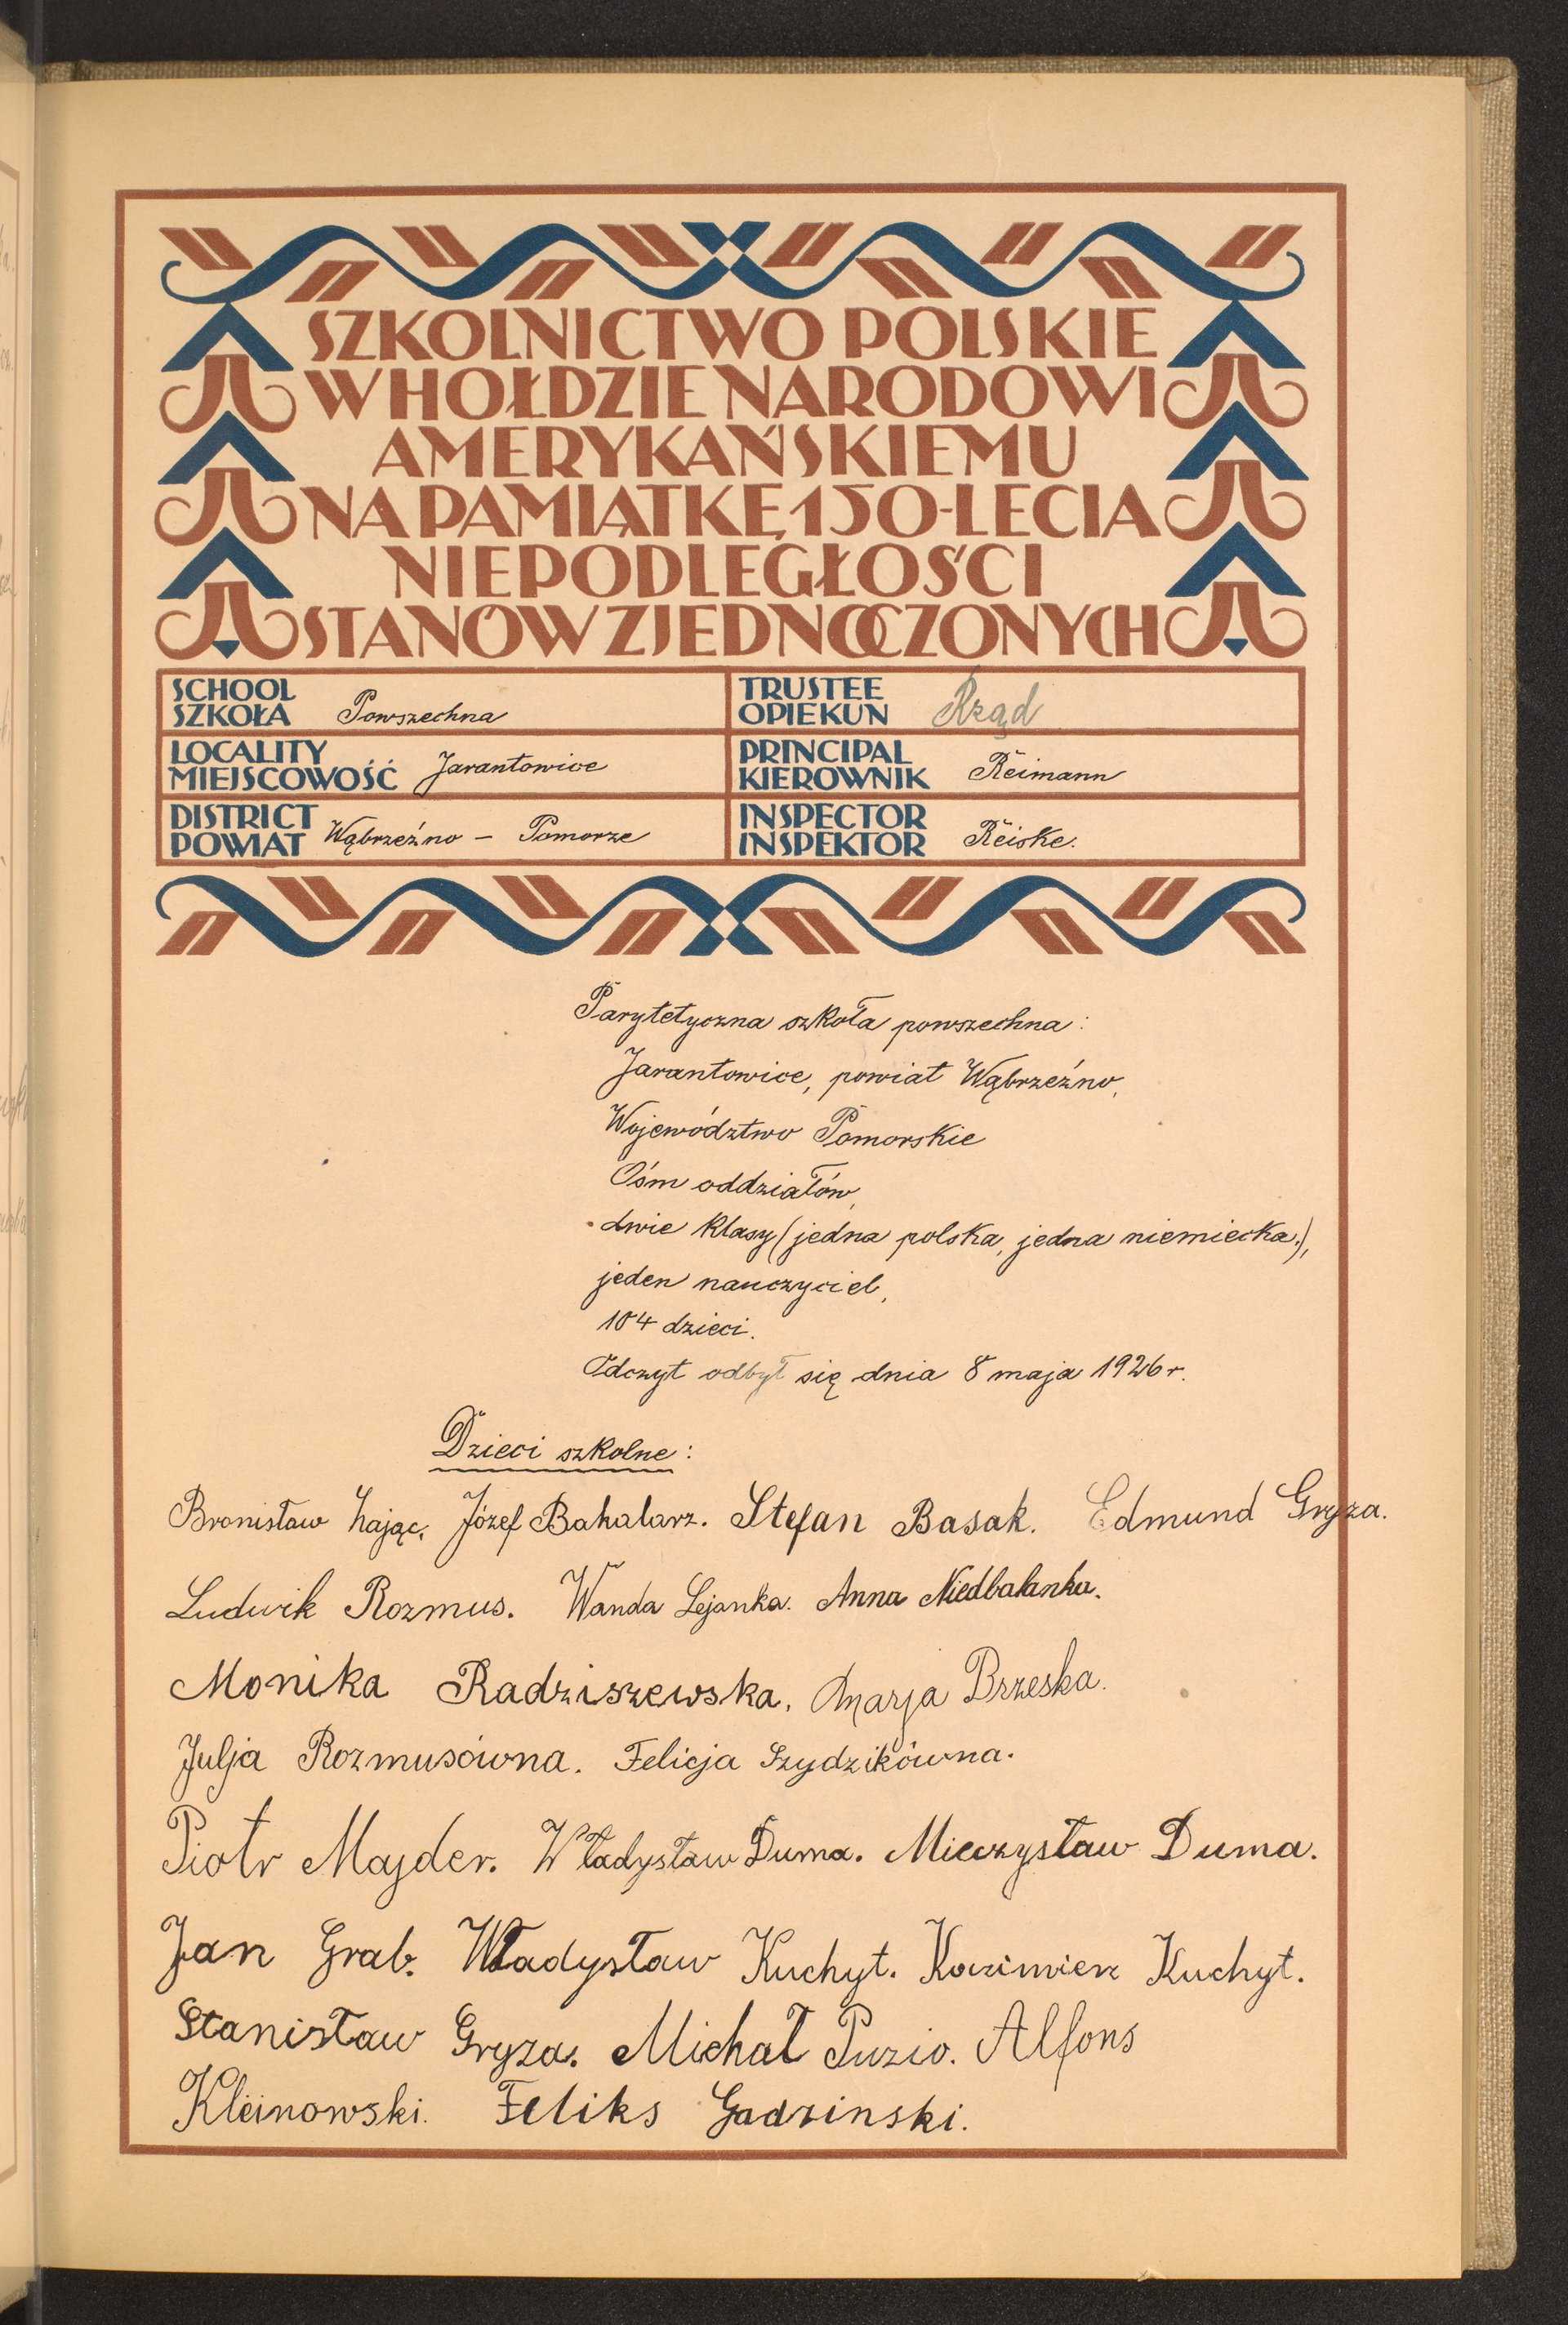 SZKOLNICTWO POLSKIE
W HOŁDZIE NARODOWI
AMERYKAŃSKIEMU
NA PAMIĄTKĘ 150-LECIA
NIEPODLEGŁOŚCI
STANÓW ZJEDNOCZONYCH
SCHOOL
SZKOŁA Powszechna
TRUSTEE
OPIEKUN Rząd
LOCALITY
MIEJSCOWOŚĆ Jarantowice
PRINCIPAL
KIEROWNIK Reimann
DISTRICT
POWIAT Wąbrzeźno – Pomorze
INSPECTOR
INSPEKTOR Reiske.
Parytetyczna szkoła powszechna:
Jarantowice, powiat Wąbrzeźno,
Województwo Pomorskie
Ośm oddziałów,
dwie klasy (jedna polska, jedna niemiecka.),
jeden nauczyciel,
104 dzieci.
Odczyt odbył się dnia 8 maja 1926 r.
Dzieci szkolne:
Bronisław Zając. Józef Bakalarz. Stefan Basak. Edmund Gryza.
Ludwik Rozmus. Wanda Lejanka. Anna Niedbalanka.
Monika Radziszewska. Marja Brzeska.
Julja Rozmusówna. Felicja Szydzikówna.
Piotr Majder. Władysław Duma. Mieczysław Duma.
Jan Grab. Władysław Kuchyt. Kazimierz Kuchyt.
Stanisław Gryza. Michał Puzio. Alfons
Kleinowski. Feliks Gadzinski.